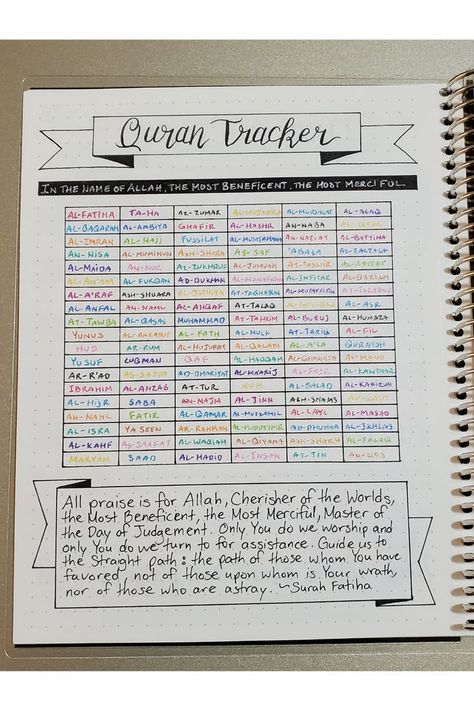 Quran Tracker
IN THE NAME OF ALLAH, THE MOST BENEFICENT, THE MOST MERCIFUL
AL-FATIHA TA-HA AZ-ZUMAR AL-MUJADILA AL-MURSALAT AL-ALAQ
AL-BAQARAH AL-ANBIYA GHAFIR AL-HASHR AN-NABA
AL-IMRAN AL-HAJJ FUSSILAT AL-MUMTAHANA AN-NAZIAT AL-BAYYINA
AN-NISA AL-MUMINUN ASH-SHURA AS-SAF 'ABASA AZ-ZALZALA
AL-MAIDA AN-NUR AZ-ZUKHRUF AL-JUMUAH AT-TAKWIR
AL-AN'AM AL-FURQAN AD-DUKHAN AL-MUNAFIQUN AL-INFITAR
AL-A'RAF ASH-SHUARA AL-JATHIYA AT-TAGHABUN
AL-ANFAL AN-NAML AL-AHQAF AT-TALAQ AL-ASR
AT-TAWBA AL-QASAS MUHAMMAD AT-TAHRIM AL-BURUJ AL-HUMAZA
YUNUS AL-ANKABUT AL-FATH AL-MULK AT-TARIQ AL-FIL
HUD AR-RUM AL-HUJURAT AL-QALAM AL-A'LA QURAYSH
YUSUF LUQMAN QAF AL-HAQQAH AL-GHASHIYA AL-MAUN
AR-R'AD AS-SAJDA AD-DHARIYAT AL-MAARIJ AL-FAJR AL-KAWTHAR
IBRAHIM AL-AHZAB AT-TUR NUH AL-BALAD AL-KAFIRUN
AL-HIJR SABA AN-NAJM AL-JINN ASH-SHAMS
AN-NAHL FATIR AL-QAMAR AL-MUZZAMIL AL-LAYL AL-MASAD
AL-ISRA YA SEEN AR-RAHMAN AL-MUDDATHIR AD-DHUHA AL-IKHLAS
AL-KAHF AS-SAAFAT AL-WAQIAH AL-QIYAMA ASH-SHARH AL-FALAQ
MARYAM SAAD AL-HADID AL-INSAN AT-TIN AN-NAS
All praise is for Allah, Cherisher of the Worlds,
the Most Beneficent, the Most Merciful, Master of
the Day of Judgement. Only You do we worship and
only You do we turn to for assistance. Guide us to
the Straight path: the path of those whom You have
favored, not of those upon whom is Your wrath,
nor of those who are astray. ~Surah Fatiha